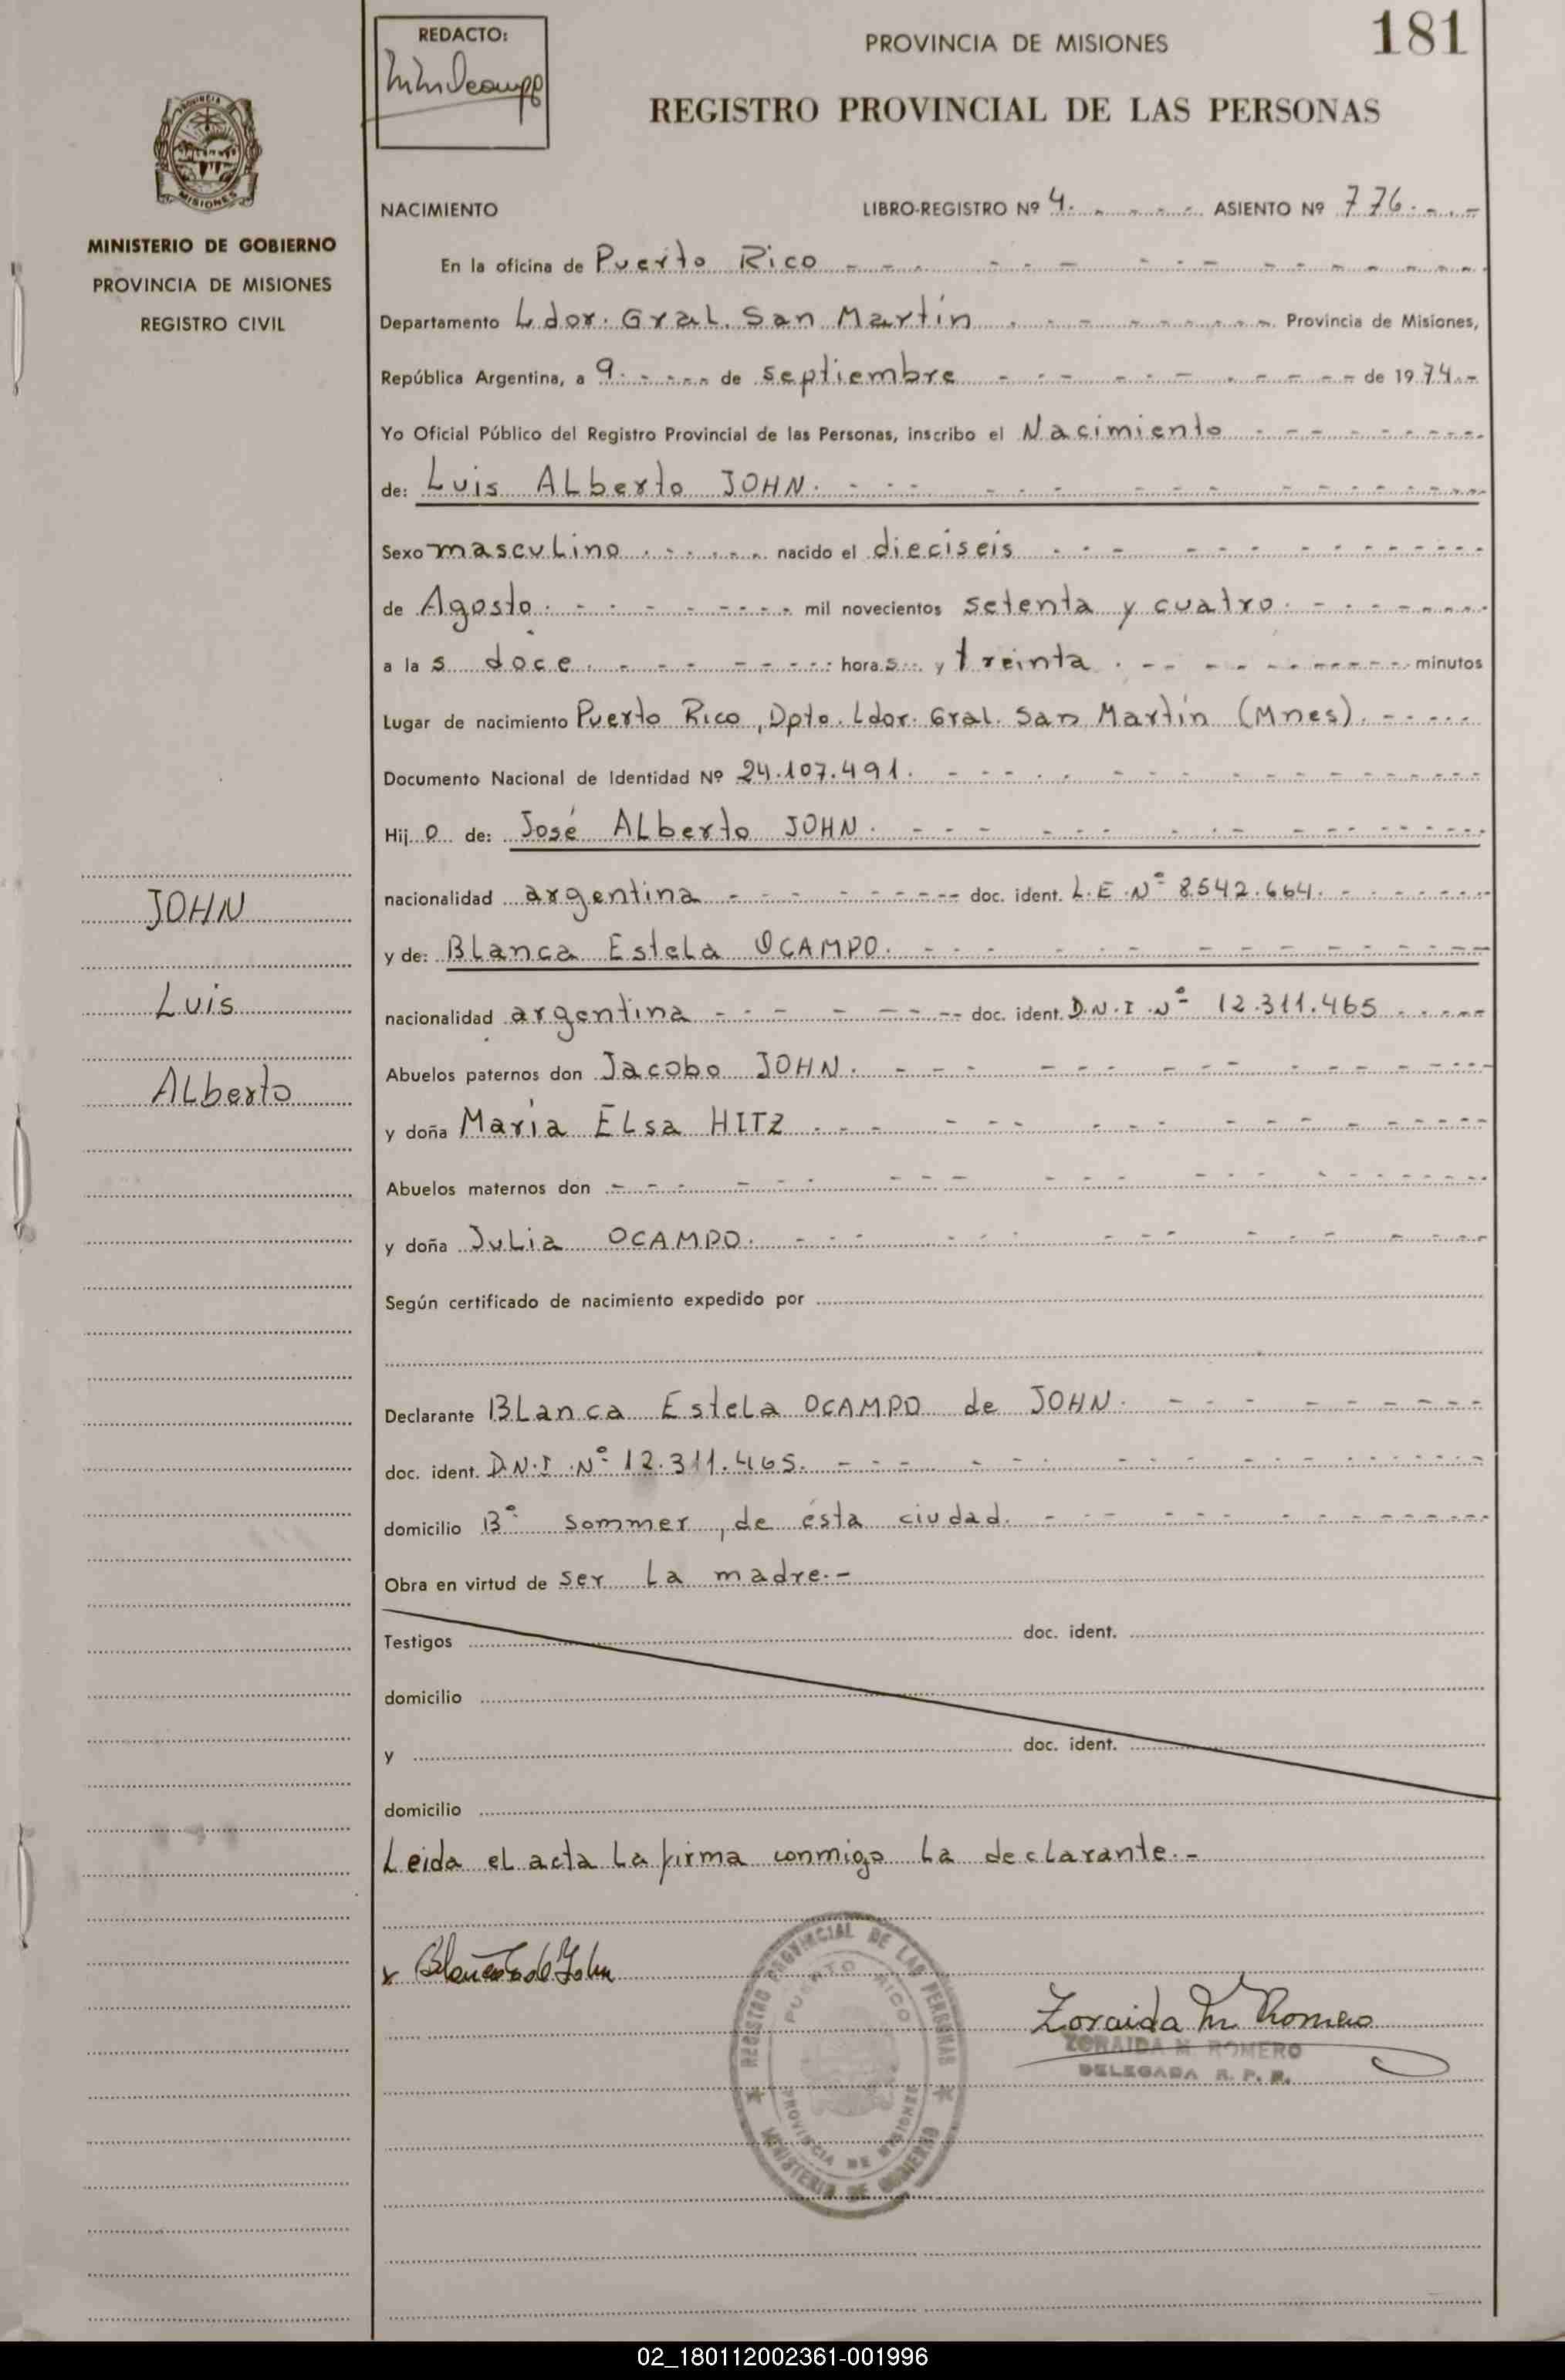 REDACTO:
PROVINCIA DE MISIONES
181
REGISTRO PROVINCIAL DE LAS PERSONAS
PROVINCIA
MISIONES
MINISTERIO DE GOBIERNO
PROVINCIA DE MISIONES
REGISTRO CIVIL
NACIMIENTO LIBRO-REGISTRO Nº 4. ASIENTO Nº 776.
En la oficina de Puerto Rico
Departamento Ldor. Gral. San Martín Provincia de Misiones,
República Argentina, a 9. de septiembre de 1974.-
Yo Oficial Público del Registro Provincial de las Personas, inscribo el Nacimiento
de: Luis ALberto JOHN.
Sexo mascuLino nacido el dieciseis
de Agosto. mil novecientos setenta y cuatro.
a la s doce. hora s y treinta. minutos
Lugar de nacimiento Puerto Rico, Dpto. Ldor. Gral. San Martín (Mnes).
Documento Nacional de Identidad Nº 24.107.491.
Hij o de: José ALberto JOHN.
nacionalidad argentina doc. ident. L.E.Nº 8542.664.
y de: BLanca EsteLa OCAMPO.
nacionalidad argentina doc. ident. D.N.I.Nº 12.311.465
Abuelos paternos don Jacobo JOHN.
y doña María ELsa HITZ
Abuelos maternos don
y doña JuLia OCAMPO.
Según certificado de nacimiento expedido por
Declarante BLanca EsteLa OCAMPO de JOHN.
doc. ident. D.N.I.Nº 12.311.465.
domicilio Bº sommer, de ésta ciudad.
Obra en virtud de ser La madre.-
Testigos doc. ident.
domicilio
y doc. ident.
domicilio
Leida eL acta La firma conmigo La decLarante.-
JOHN
Luis
ALberto
x de John
REGISTRO PROVINCIAL DE LAS PERSONAS
PUERTO RICO
PROVINCIA DE MISIONES
MINISTERIO DE GOBIERNO
Zoraida M. Romero
ZORAIDA M. ROMERO
DELEGADA R. P. P.
02_180112002361-001996